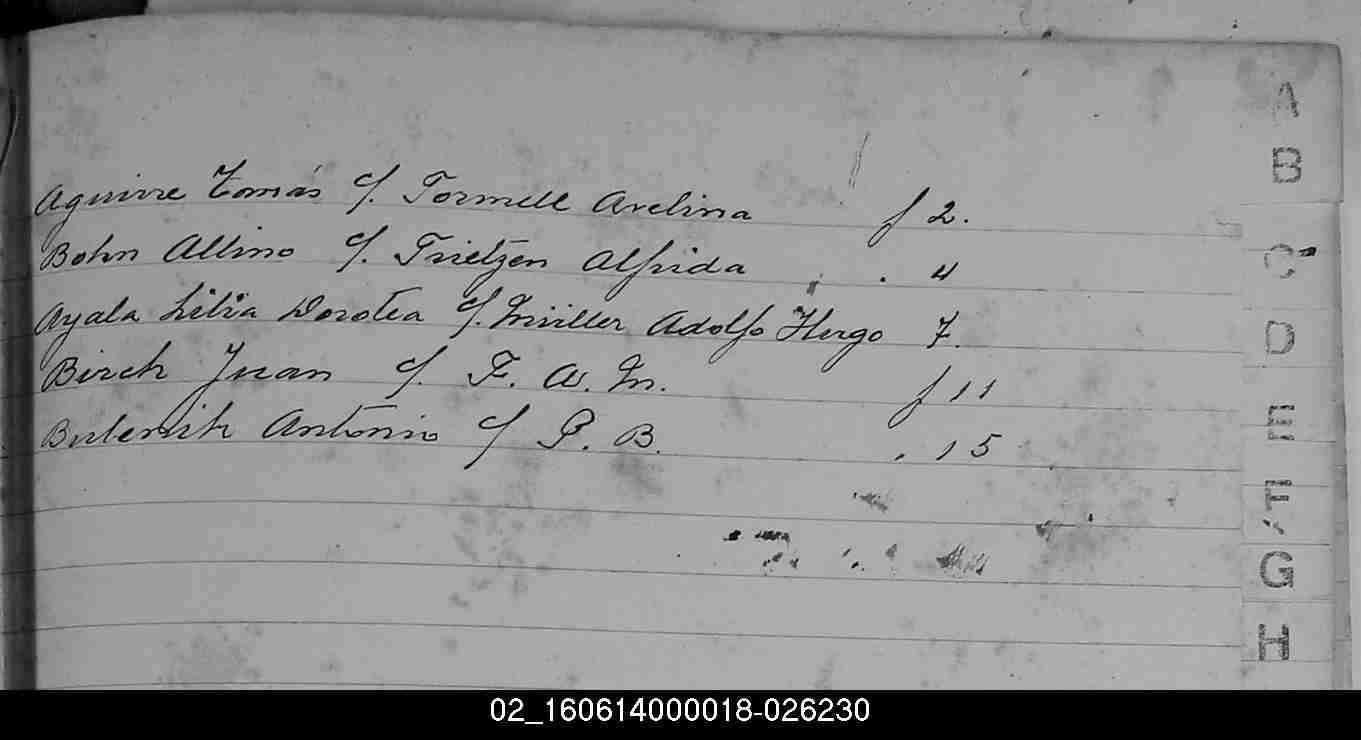 A
B
Aguirre Tomás c/. Tormell Avelina f 2.
C
Bohn Albino c/. Trietzen Alfrida . 4
Ayala Lilia Dorotea c/. Müller Adolfo Hugo 7.
D
Birch Juan c/. F. A. M. f 11
E
Antonio c/ P. B. . 15
F
G
H
02_160614000018-026230